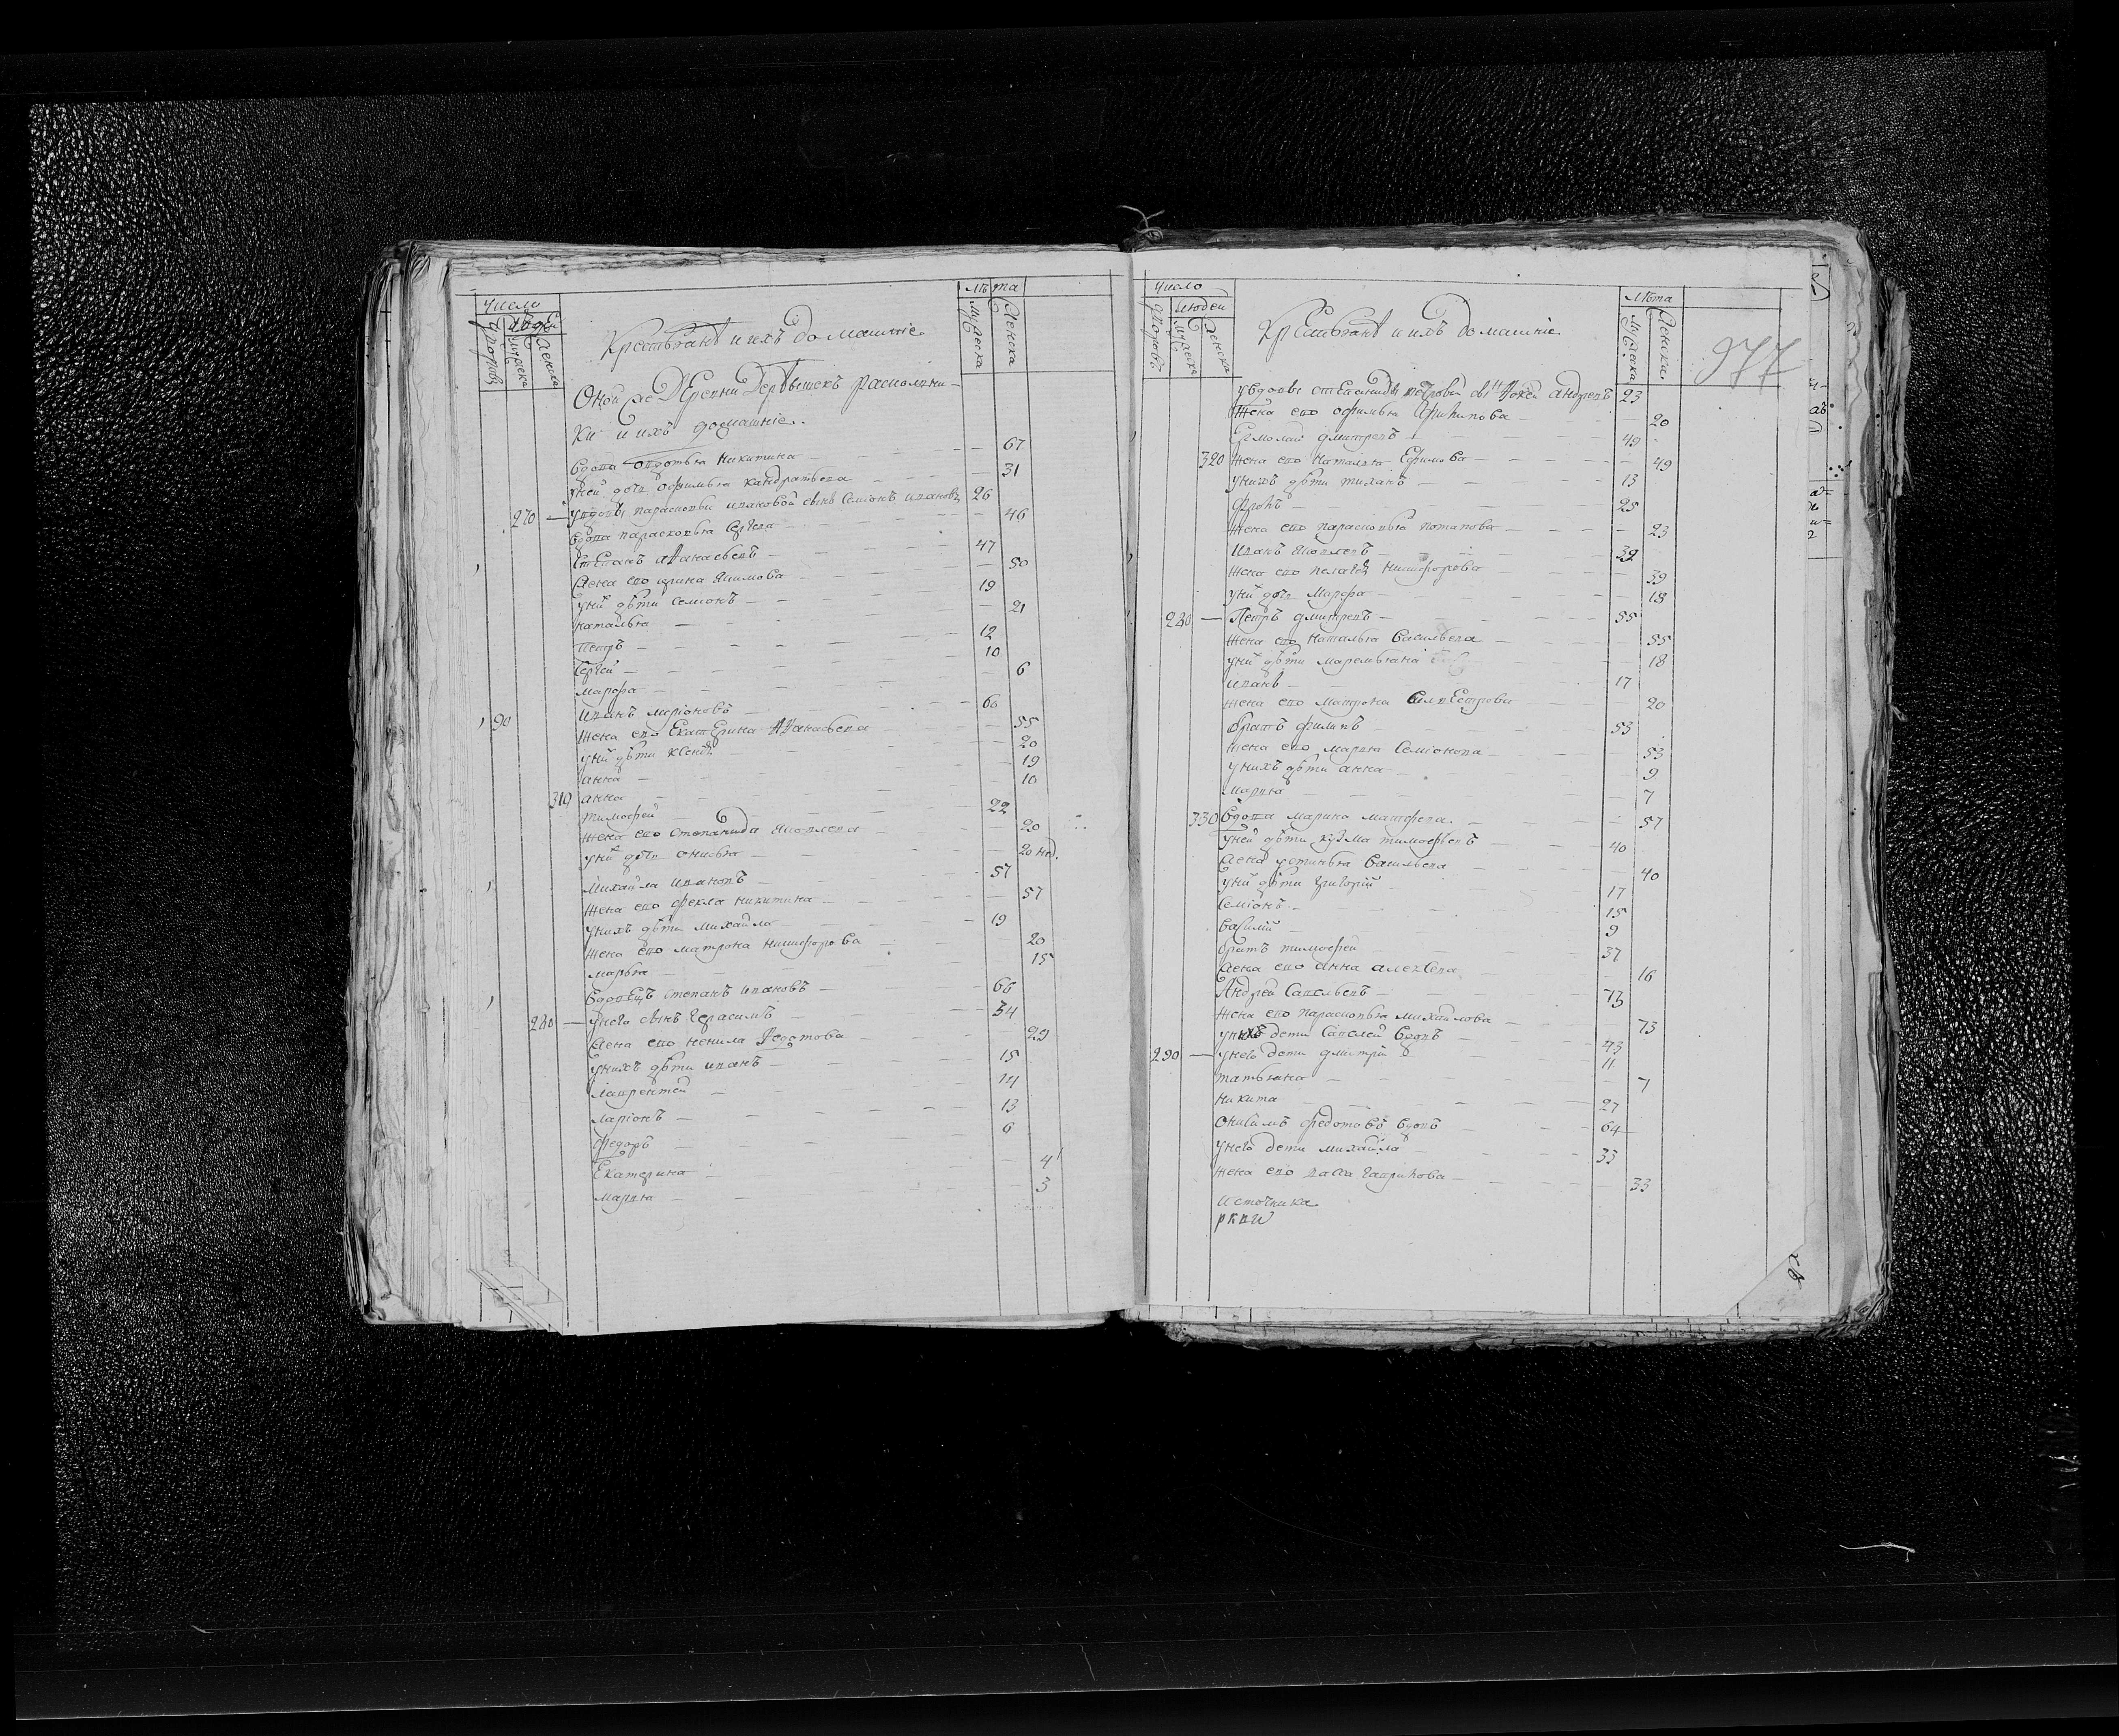 Число
людей
дворовъ
мужеска
женска
Крестьянѣ и ихъ домашніе
лѣта
мужеска
женска
Оной же Деревни Деревяшекъ располжни-
ки и ихъ домашніе.
вдова овдотья Никитина 67
уней дочь офимья кандратьева 31
270 увдовы парасковьи ивановой сынъ Семіонъ ивановъ 26
вдова парасковья Сергева 46
Степанъ афанасьевъ 47
жена ево ирина Якимова 50
уних дѣти Семіонъ 19
наталья 21
Петръ 12
Сергей 10
марфа 6
90 иванъ ларіоновъ 60
жена ево Екатерина афанасьева 55
уних дѣти ксенія 20
анна 19
310 анна 10
тимофей 22
жена ево степанида Яковлева 20
уних дочь онисья 20 нед.
михайла ивановъ 57
жена ево фекла никитина 57
унихъ дѣти михайла 19
жена ево матрона никифорова 20
марья 15
вдовецъ степанъ ивановъ 66
280 унего сынъ герасимъ 34
жена ево ненила Федотова 29
унихъ дѣти иванъ 15
лаврентей 14
ларіонъ 13
федоръ 6
Екатерина 4
марья 3
Число
людей
дворовъ
мужеска
женска
Крестьянѣ и ихъ домашніе
лѣта
мужеска
женска
977
увдовы степаниды петровой сынъ фокей андревъ 23
жена ево офимья филипова 20
Ермолай дмитревъ 49
320 жена ево наталья Ефимова 49
унихъ дѣти тиханъ 13
фролъ 25
жена ево парасковья потапова 23
иванъ яковлевъ 39
жена ево пелагея никифорова 39
уних дочь марфа 18
280 Петръ дмитревъ 55
жена ево наталья васильева 55
уних дѣти маремьяна 18
иванъ 17
жена ево матрона Силвестрова 20
братъ филипъ 53
жена ево марья Семіонова 53
унихъ дѣти анна 9
марья 7
330 вдова марина матфева 57
уней дѣти кузма тимофевъ 40
жена устинья васильева 40
уних дѣти григорій 17
Семіонъ 15
василій 9
братъ тимофей 37
жена ево анна алексева 16
Андрей Савельевъ 73
жена ево парасковья михайлова 73
унихъ дети Савелей вдовъ 43
290 унего дети дмитрій 11
татьяна 7
никита 27
онисимъ федотовъ вдовъ 64
унего дети михайла 33
жена ево васса гаврилова 33
источника